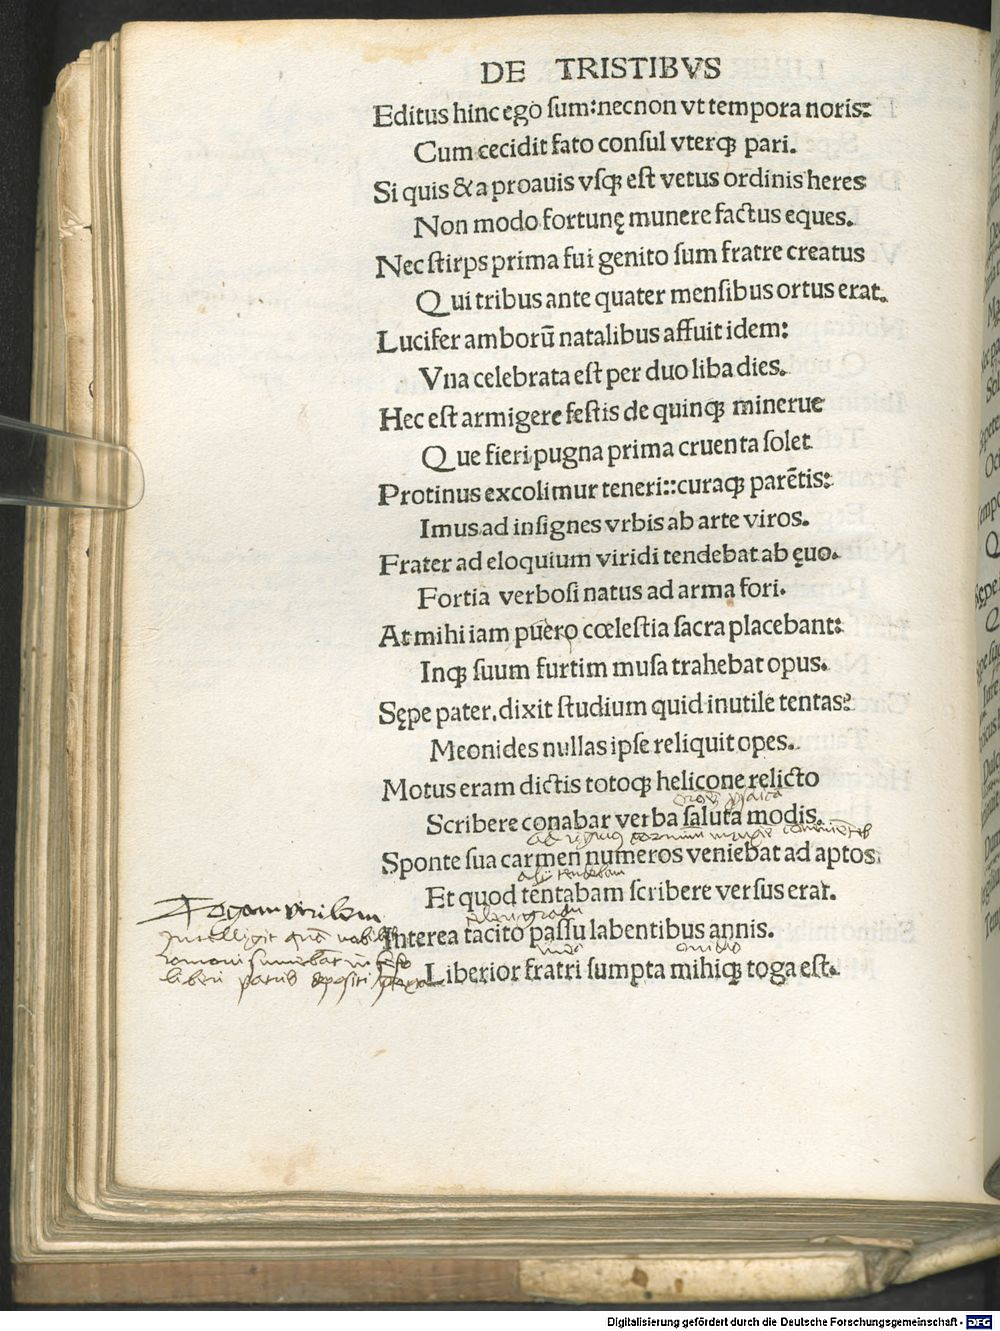 DE TRISTIBVS
Editus hinc ego ſum: necnon vt tempora noris:
Cum cecidit fato conſul vterqꝫ pari.
Si quis & a proauis vſqꝫ eſt vetus ordinis heres
Non modo fortunę munere factus eques.
Nec ſtirps prima fui genito ſum fratre creatus
Qui tribus ante quater menſibus ortus erat.
Lucifer amborū natalibus affuit idem:
Vna celebrata eſt per duo liba dies.
Hec eſt armigere feſtis de quinqꝫ minerue
Que fieri pugna prima cruenta ſolet
Protinus excolimur teneri:: curaqꝫ parētis:
Imus ad inſignes vrbis ab arte viros.
Frater ad eloquium viridi tendebat ab ęuo.
Fortia verboſi natus ad arma fori.
At mihi iam puero cœleſtia ſacra placebant:
Inqꝫ ſuum furtim muſa trahebat opus.
Sępe pater. dixit ſtudium quid inutile tentas?
Meonides nullas ipſe reliquit opes.
Motus eram dictis totoqꝫ helicone relicto
Scribere conabar verba ſaluta modis.
Sponte ſua carmen numeros veniebat ad aptos:
Et quod tentabam ſcribere verſus erat.
pleno gradu
Interea tacito paſſu labentibus annis.
ouidio
Liberior fratri ſumpta mihiqꝫ toga eſt.
Togam virilem
romani
liberi patris
Digitalisierung gefördert durch die Deutsche Forschungsgemeinschaft - DFG